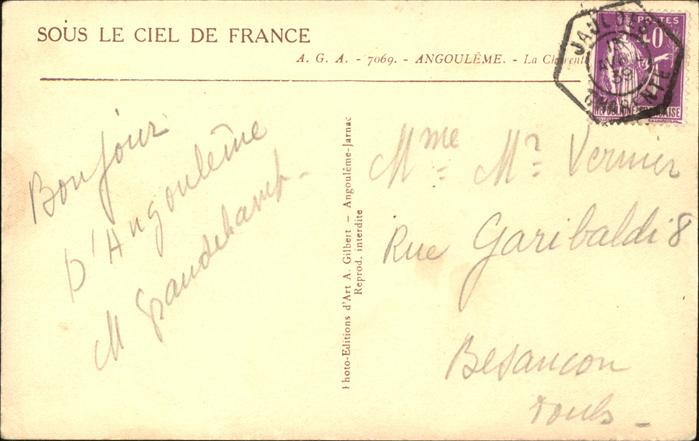 SOUS LE CIEL DE FRANCE
A. G. A. - 7069. - ANGOULÊME. - La Charente
POSTES
JAULDES
AV
39
CHARENTE
Bonjour
D'Angoulême
M Grandchamp
Photo-Editions d'Art A. Gilbert - Angoulême-Jarnac
Reprod. interdite
Mme Mr Vernier
Rue Garibaldi 8
Besancon
Doubs